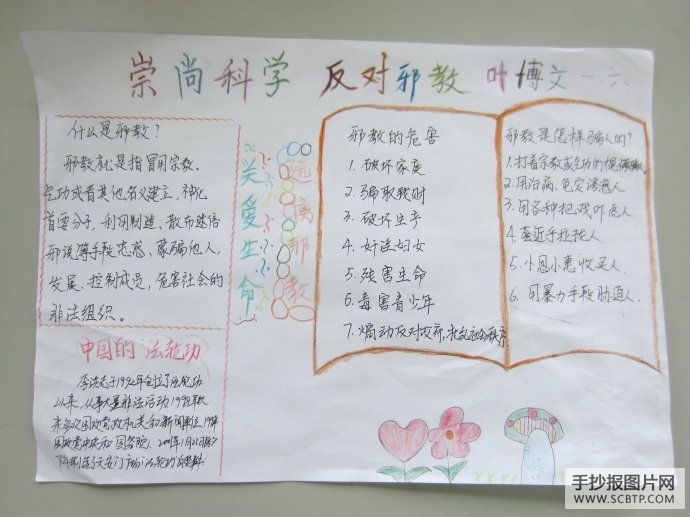 崇尚科学 反对邪教 叶博文 一六
什么是邪教？
邪教就是指冒用宗教、
气功或者其他名义建立，神化
首要分子，利用制造、散布迷信
邪说等手段蛊惑、蒙骗他人，
发展、控制成员，危害社会的
非法组织。
中国的"法轮功
李洪志于1992年创立了法轮功
以来，从事大量非法活动
关爱生命
远离邪教
邪教的危害
1. 破坏家庭
2. 骗取钱财
3. 破坏生产
4. 奸淫妇女
5. 残害生命
6. 毒害青少年
7. 煽动反对政府，扰乱社会秩序
邪教是怎样骗人的？
1. 打着宗教或气功的
2. 用治病、免灾诱惑人
3. 用各种把戏吓唬人
4. 套近乎拉拢人
5. 小恩小惠收买人
6. 用暴力手段胁迫人
手抄报图片网
WWW.SCBTP.COM